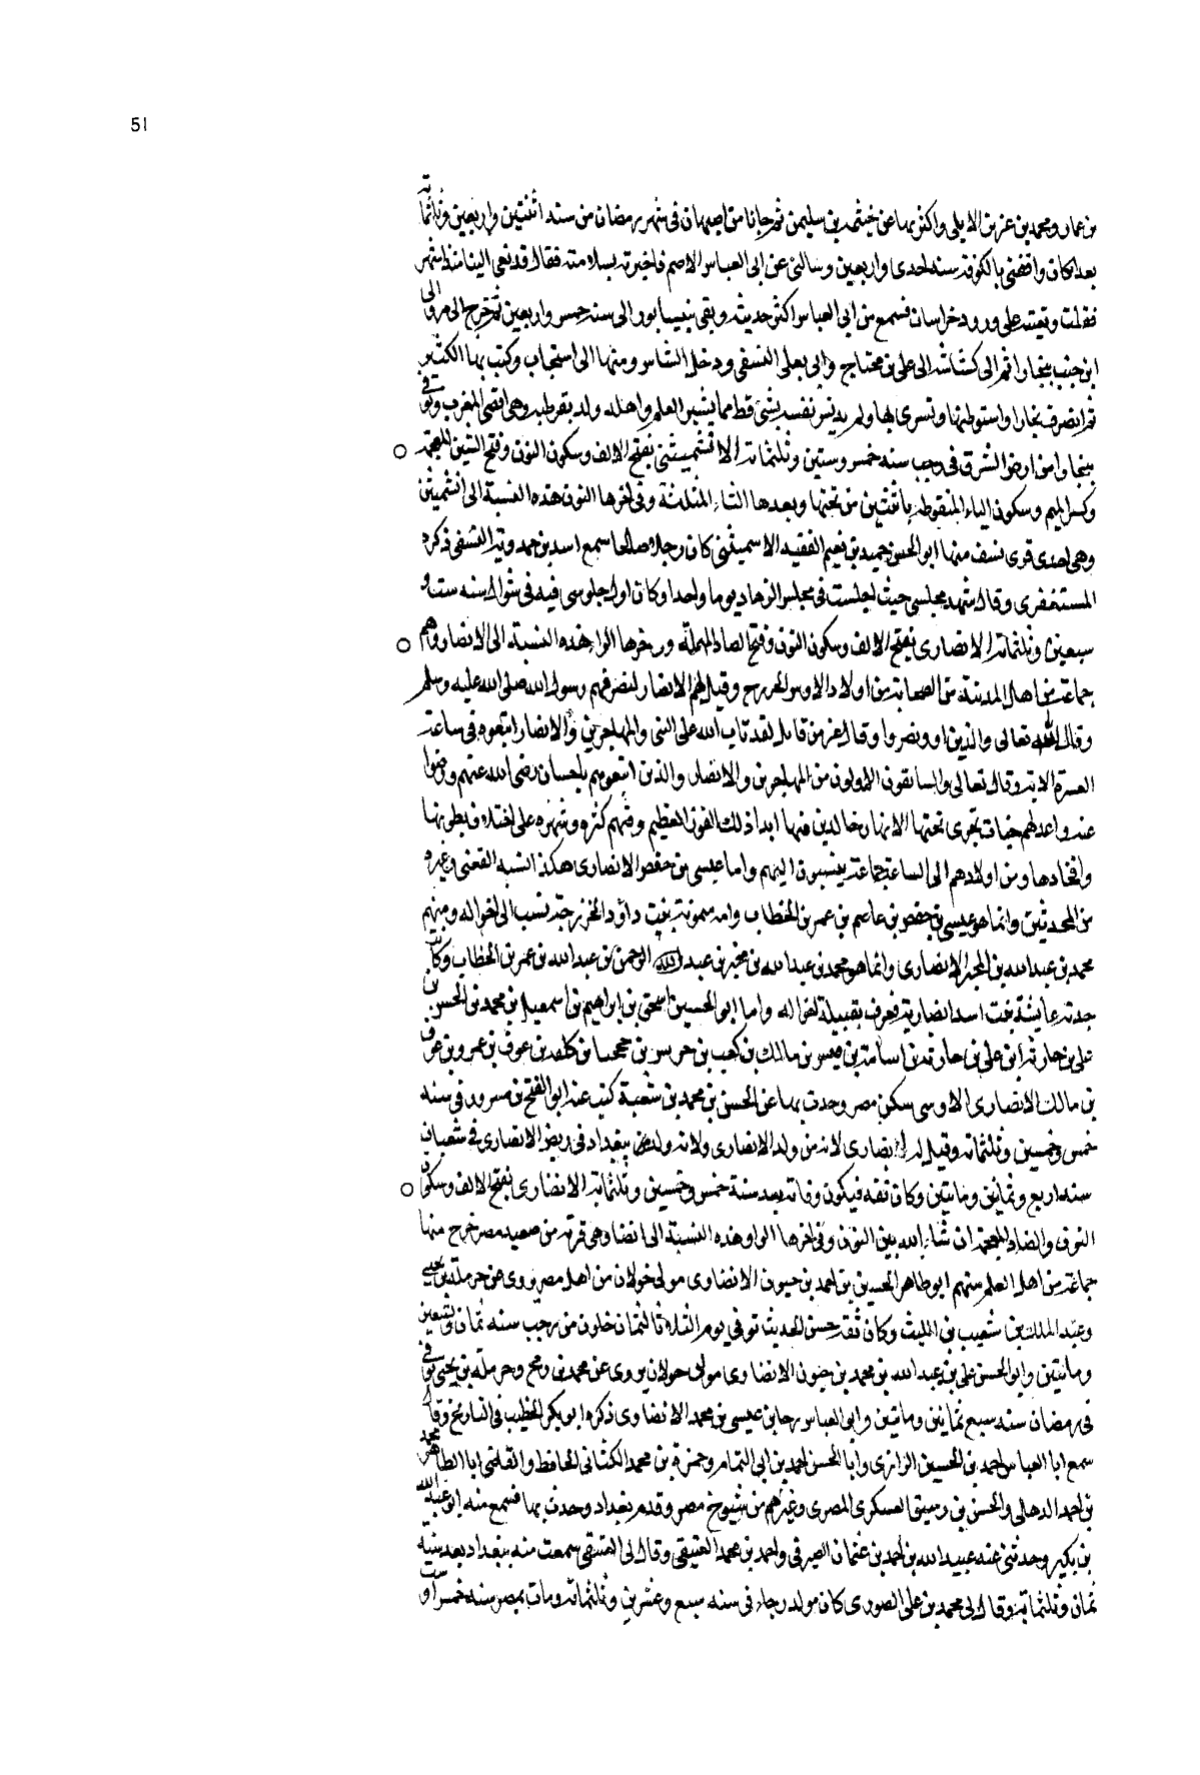 51
بن عمار ومحمد بن عزيز الايلى واكثر بها عن خيثمه بن سليمن ثم جانا من اصبهان فى شهر رمضان من سنه اثنتين واربعين وثلثمائة
بعد ان كان وافقنى بالكوفه سنه احدى واربعين وسالنى عن ابى العباس الاصم فاخبرته بسلامته فقال قد نعى الينا منذ اشهر
فقلت وبعثته على ورود خراسان فسمع من ابى العباس اكثر حديثه وبقى بنيسابور الى سنه خمس واربعين ثم خرج الى مرو الى
ابن جنب ببخارا ثم الى كشاشه الى على بن محتاج والى يعلى النسفى ودخل الشاس ومنها الى اسبجاب وكتب بها الكثير
ثم انصرف بخارا واستوطنها وتسرى بها ولم يدنس نفسه بشئ قط مما يشين العلم واهله ولد بقرطبه وهى اقصى المغرب وتوفى
ببخارا من ارض الشرق فى رجب سنه خمس وستين وثلثمائه الانشميثنى بفتح الالف وسكون النون وفتح الشين المعجمه
وكسر الميم وسكون الياء المنقوطه باثنتين من تحتها وبعدها الثاء المثلثة وفى اخرها النون هذه النسبة الى انشميثن
وهى احدى قرى نسف منها ابو الحسن حميد بن نعيم الفقيه الاسميثنى كان رجلا صالحا سمع اسد بن حمدويه النسفى ذكره
المستغفرى وقال شهد مجلسى حيث اجلست فى مجلس الزهاد يوما واحدا وكان اول جلوسى فيه فى شوال سنه ست و
سبعين وثلثمائه الانصارى بفتح الالف وسكون النون وفتح الصاد المهملة وفى اخرها الراء هذه النسبة الى الانصار وهم
جماعة من اهل المدينة من الصحابة من اولاد الاوس والخزرج وقيل لهم الانصار لنصرتهم رسول الله صلى الله عليه وسلم
وقال الله تعالى والذين اووا ونصروا وقال عز من قائل لقد تاب الله على النبى والمهاجرين والانصار اتبعوه فى ساعة
العسرة الاية وقال تعالى والسابقون الاولون من المهاجرين والانصار والذين اتبعوهم باحسان رضى الله عنهم ورضوا
عنه واعد لهم جنات تجرى تحتها الانهار خالدين فيها ابدا ذلك الفوز العظيم وفيهم كثرة وشهرة على اختلاف بطونها
وافخادها ومن اولادهم الى الساعة جماعة ينسبون اليهم واما عيسى بن حفص الانصارى هكذا نسبه القعنبى وغيره
من المحدثين وانما هو عيسى بن حفص بن عاصم بن عمر بن الخطاب وامه ميمونة بنت داؤد الخزرجية نسب الى اخواله ومنهم
محمد بن عبد الله بن المجبر الانصارى وانما هو محمد بن عبد الله بن مجبر بن عبد الله الرحمن بن عبد الله بن عمر بن الخطاب وكانت
جدته عايشة بنت اسد انصارية فعرف بقبيلة اخواله واما ابو الحسين اسحق بن ابراهيم بن اسمعيل بن محمد بن الحسن بن
على بن حارثه ابن على بن حارثة بن اسامة بن قيس بن مالك بن كعب بن حريس بن جحجبا بن كلفه بن عوف بن عمرو بن عوف
بن مالك الانصارى الاوسى سكن مصر وحدث بها عن الحسن بن محمد بن شعبة كتب عنه ابو الفتح بن مسرور فى سنه
خمس وخمسين وثلثمائه وقيل له الانصارى لانه من ولد الانصارى ولانه ولد ببغداد فى ربض الانصارى فى شعبان
سنه اربع وثمانين ومايتين وكان ثقه فيكون وفاته بعد سنة خمس وخمسين وثلثمائه الانضارى بفتح الالف وسكون
النون والضاد المعجمه ان شاء الله بين النون وفى اخرها الواو هذه النسبة الى انضا وهى قرية من صعيد مصر خرج منها
جماعة من اهل العلم منهم ابو طاهر الحسين بن احمد بن حيون الانضاوى مولى خولان من اهل مصر روى عن حرملة بن يحيى
وعبد الملك بن شعيب بن الليث وكان ثقه حسن الحديث توفي يوم الثلاثا لثمان خلون من رجب سنه ثمان وتسعين
ومائتين وابو الحسن على بن عبد الله بن محمد بن حيون الانضاوى مولى خولان يروى عن محمد بن رمح وحرملة بن يحيى توفى
فى رمضان سنه سبع ثمانين ومائتين وابو العباس رجا بن عيسى بن محمد الانضاوى ذكره ابو بكر الخطيب فى التاريخ وقال
سمع ابا العباس احمد بن الحسين الرازى وابا الحسن احمد بن ابى التمام وحمزة بن محمد الكنانى الحافظ والقاضى ابا الطاهر محمد
بن احمد الدهلى والحسن بن رسيق العسكرى المصرى وغيرهم من شيوخ مصر وقدم بغداد وحدث بها فسمع منه ابو عبد الله
بن بكير وحدثنى عنه عبيد الله بن احمد بن عثمان الصيرفى واحمد بن محمد العتيقى وقال لى العتيقى سمعت منه ببغداد بعد سنة
ثمان وثلثمائة وقال لى محمد بن على الصورى كان مولد رجاء فى سنه سبع وعشرين وثلثمائه ومات بمصر سنه خمس او ست